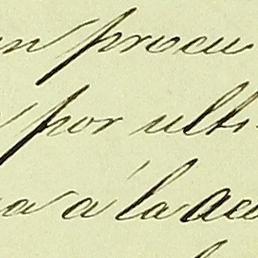 un procu
por ulti
a á la Acc